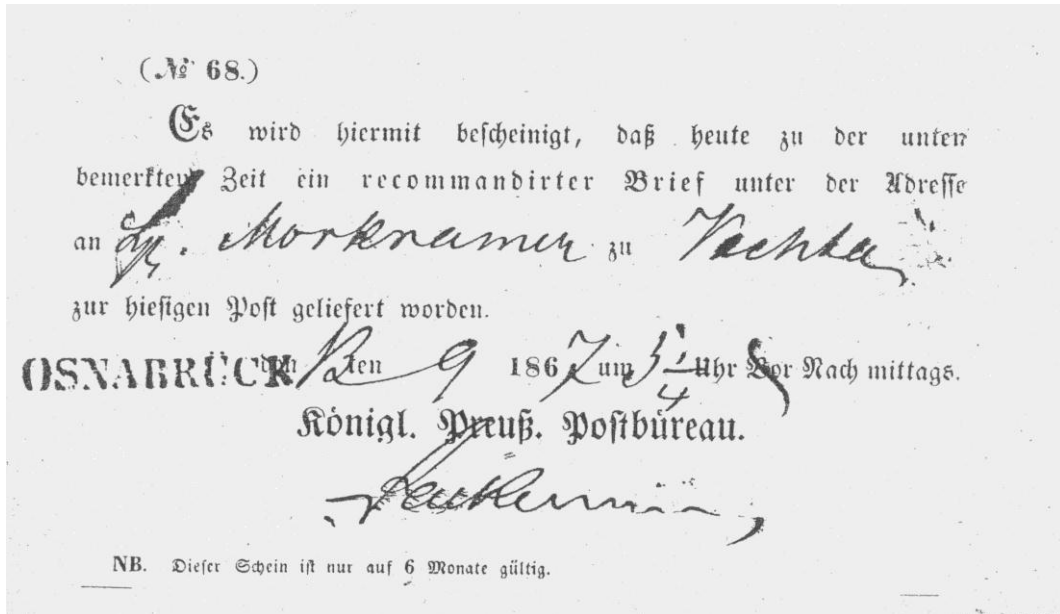 (№ 68.)
Es wird hiermit bescheinigt, daß heute zu der unten
bemerkten Zeit ein recommandirter Brief unter der Adresse
an Morkramer zu Vechta
zur hiesigen Post geliefert worden.
OSNABRÜCK den 12ten 9 1867 um 5 1/4 Uhr Vor Nach mittags.
Königl. Preuß. Postbüreau.
NB. Dieser Schein ist nur auf 6 Monate gültig.